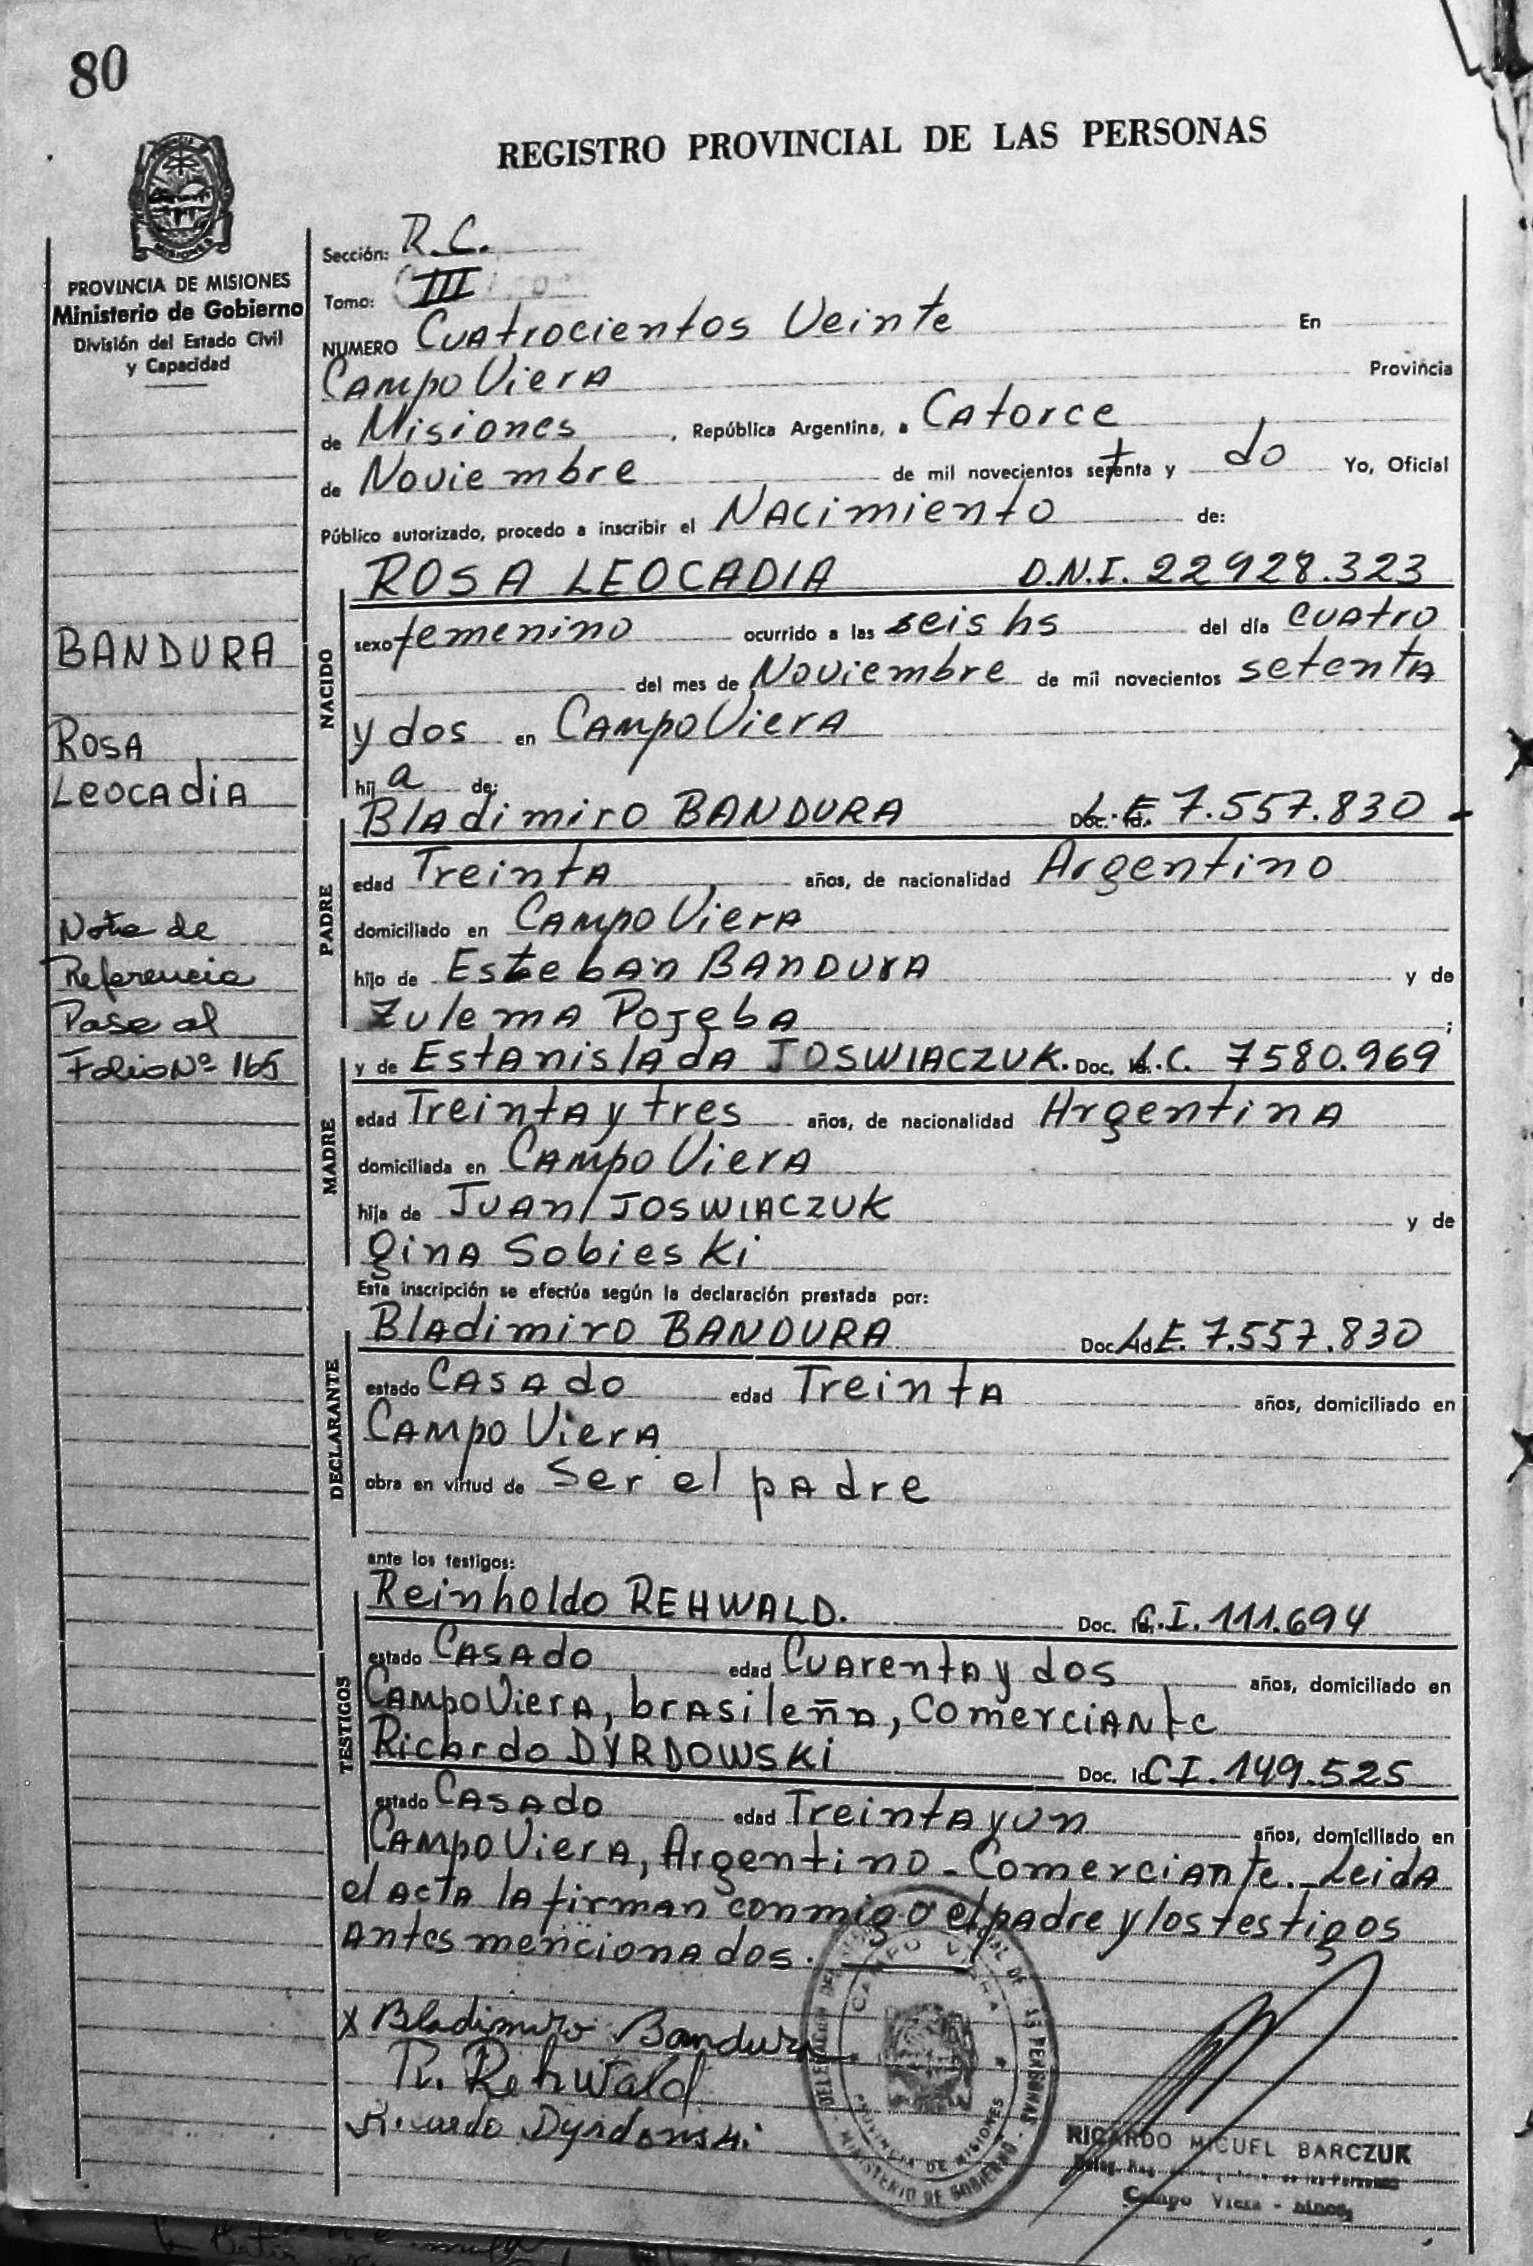 80
REGISTRO PROVINCIAL DE LAS PERSONAS
MISIONES
PROVINCIA DE MISIONES
Ministerio de Gobierno
División del Estado Civil
y Capacidad
BANDURA
ROSA
LEOCAdiA
Nota de
Referencia
Pase al
Folio Nº 165
Sección: R.C.
Tomo: III
NUMERO CUAtrocientos Veinte En
CAmpo VierA Provincia
de Misiones, República Argentina, a CAtorce
de Noviembre de mil novecientos setenta y do Yo, Oficial
Público autorizado, procedo a inscribir el NAcimiento de:
ROSA LEOCADIA D.N.I. 22928.323
NACIDO
sexo femenino ocurrido a las seis hs del día CUAtro
del mes de Noviembre de mil novecientos setentA
y dos en CAmpo VierA
hij a de:
BlAdimiro BANDURA L.E. 7.557.830
PADRE
edad TreintA años, de nacionalidad Argentino
domiciliado en CAmpo VierA
hijo de EstebAn BANDURA y de
ZulemA PojebA;
y de EstAnislAdA JOSWIACZUK. Doc. L.C. 7580.969
MADRE
edad TreintA y tres años, de nacionalidad ArgentinA
domiciliada en CAmpo VierA
hija de JUAn JOSWIACZUK y de
ginA SobiesKi
Esta inscripción se efectúa según la declaración prestada por:
BlAdimiro BANDURA Doc. Id. L.E. 7.557.830
DECLARANTE
estado CASAdo edad TreintA años, domiciliado en
CAmpo VierA
obra en virtud de Ser el pAdre
ante los testigos:
Reinholdo REHWALD. Doc. Id. C.I. 111.694
TESTIGOS
estado CASAdo edad CUArentA y dos años, domiciliado en
CAmpo VierA, brAsileñA, ComerciANte
RicArdo DYRDOWSKi Doc. Id. C.I. 149.525
estado CASAdo edad TreintA y un años, domiciliado en
CAmpo VierA, Argentino - ComerciAnte. - LeidA
el ActA lA firmAn conmigo el pAdre y los testigos
Antes mencionAdos.
x Bladimiro Bandura
R. Rehwald
Ricardo Dyrdowski
CAMPO VIERA
PROVINCIA DE MISIONES
MINISTERIO DE GOBIERNO
RICARDO MIGUEL BARCZUK
Campo Viera -